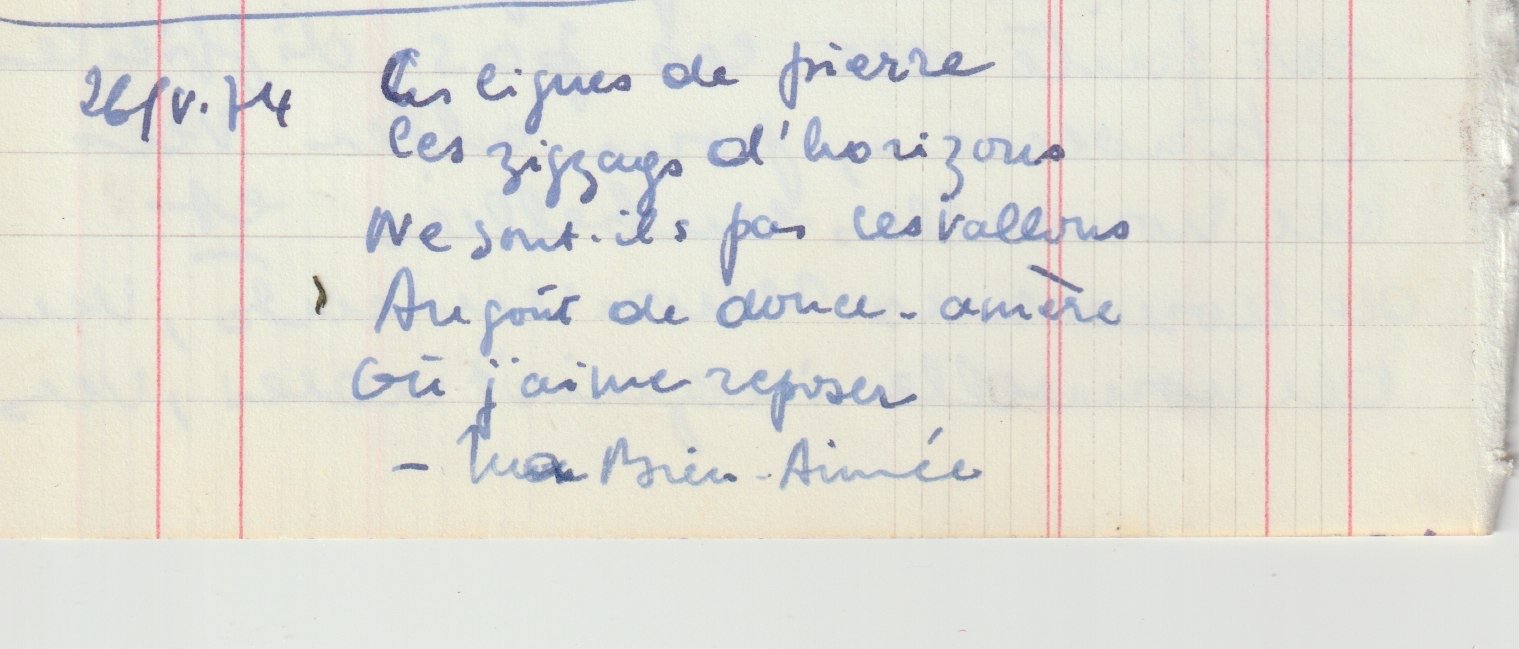 26/V.74 Les lignes de pierre
les zigzags d'horizons
Ne sont-ils pas ces vallons
Au goût de douce-amère
Où j'aime reposer
– Ma Bien-Aimée